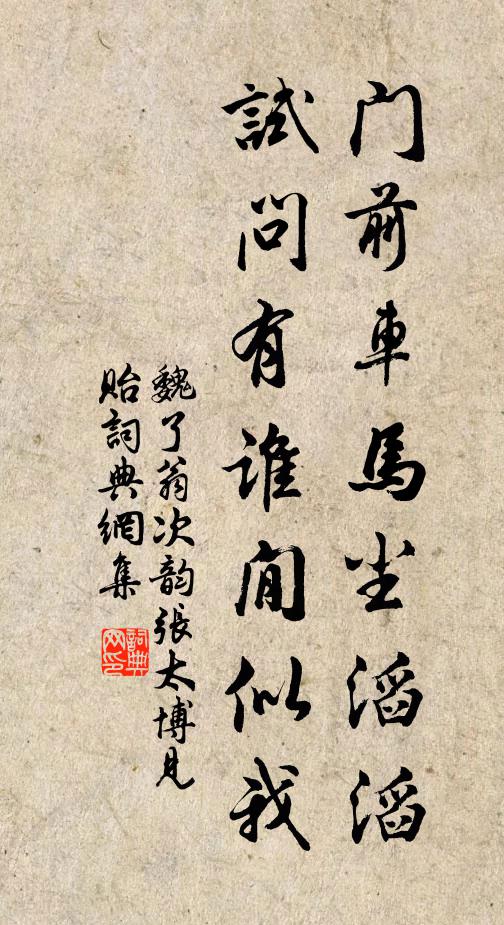 門前車馬尘滔滔
試問有誰閒似我
魏了翁次韵張太博見
貽詞典網集
詞典
网印